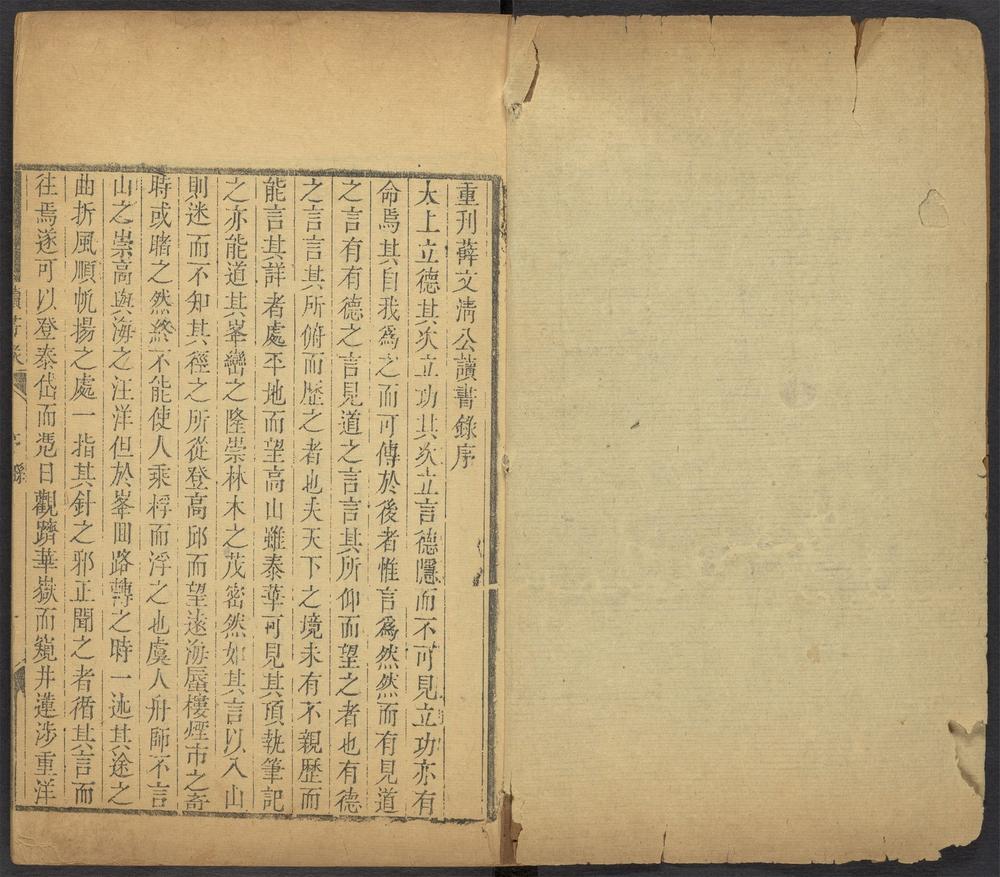 重刊薛文清公讀書錄序
太上立德其次立功其次立言德隱而不可見立功亦有
命焉其自我爲之而可傳於後者惟言爲然然而有見道
之言有有德之言見道之言言其所仰而望之者也有德
之言言其所俯而歷之者也夫天下之境未有不親歷而
能言其詳者處平地而望高山雖泰華可見其頂執筆記
之亦能道其峯巒之隆崇林木之茂密然如其言以入山
則迷而不知其徑之所從登高邱而望遠海蜃樓煙市之奇
時或睹之然終不能使人乘桴而浮之也虞人舟師不言
山之崇高與海之汪洋但於峯回路轉之時一迹其途之
曲折風順帆揚之處一指其針之邪正聞之者循其言而
往焉遂可以登泰岱而凴日觀躋華嶽而窺井蓮涉重洋
讀書錄 序